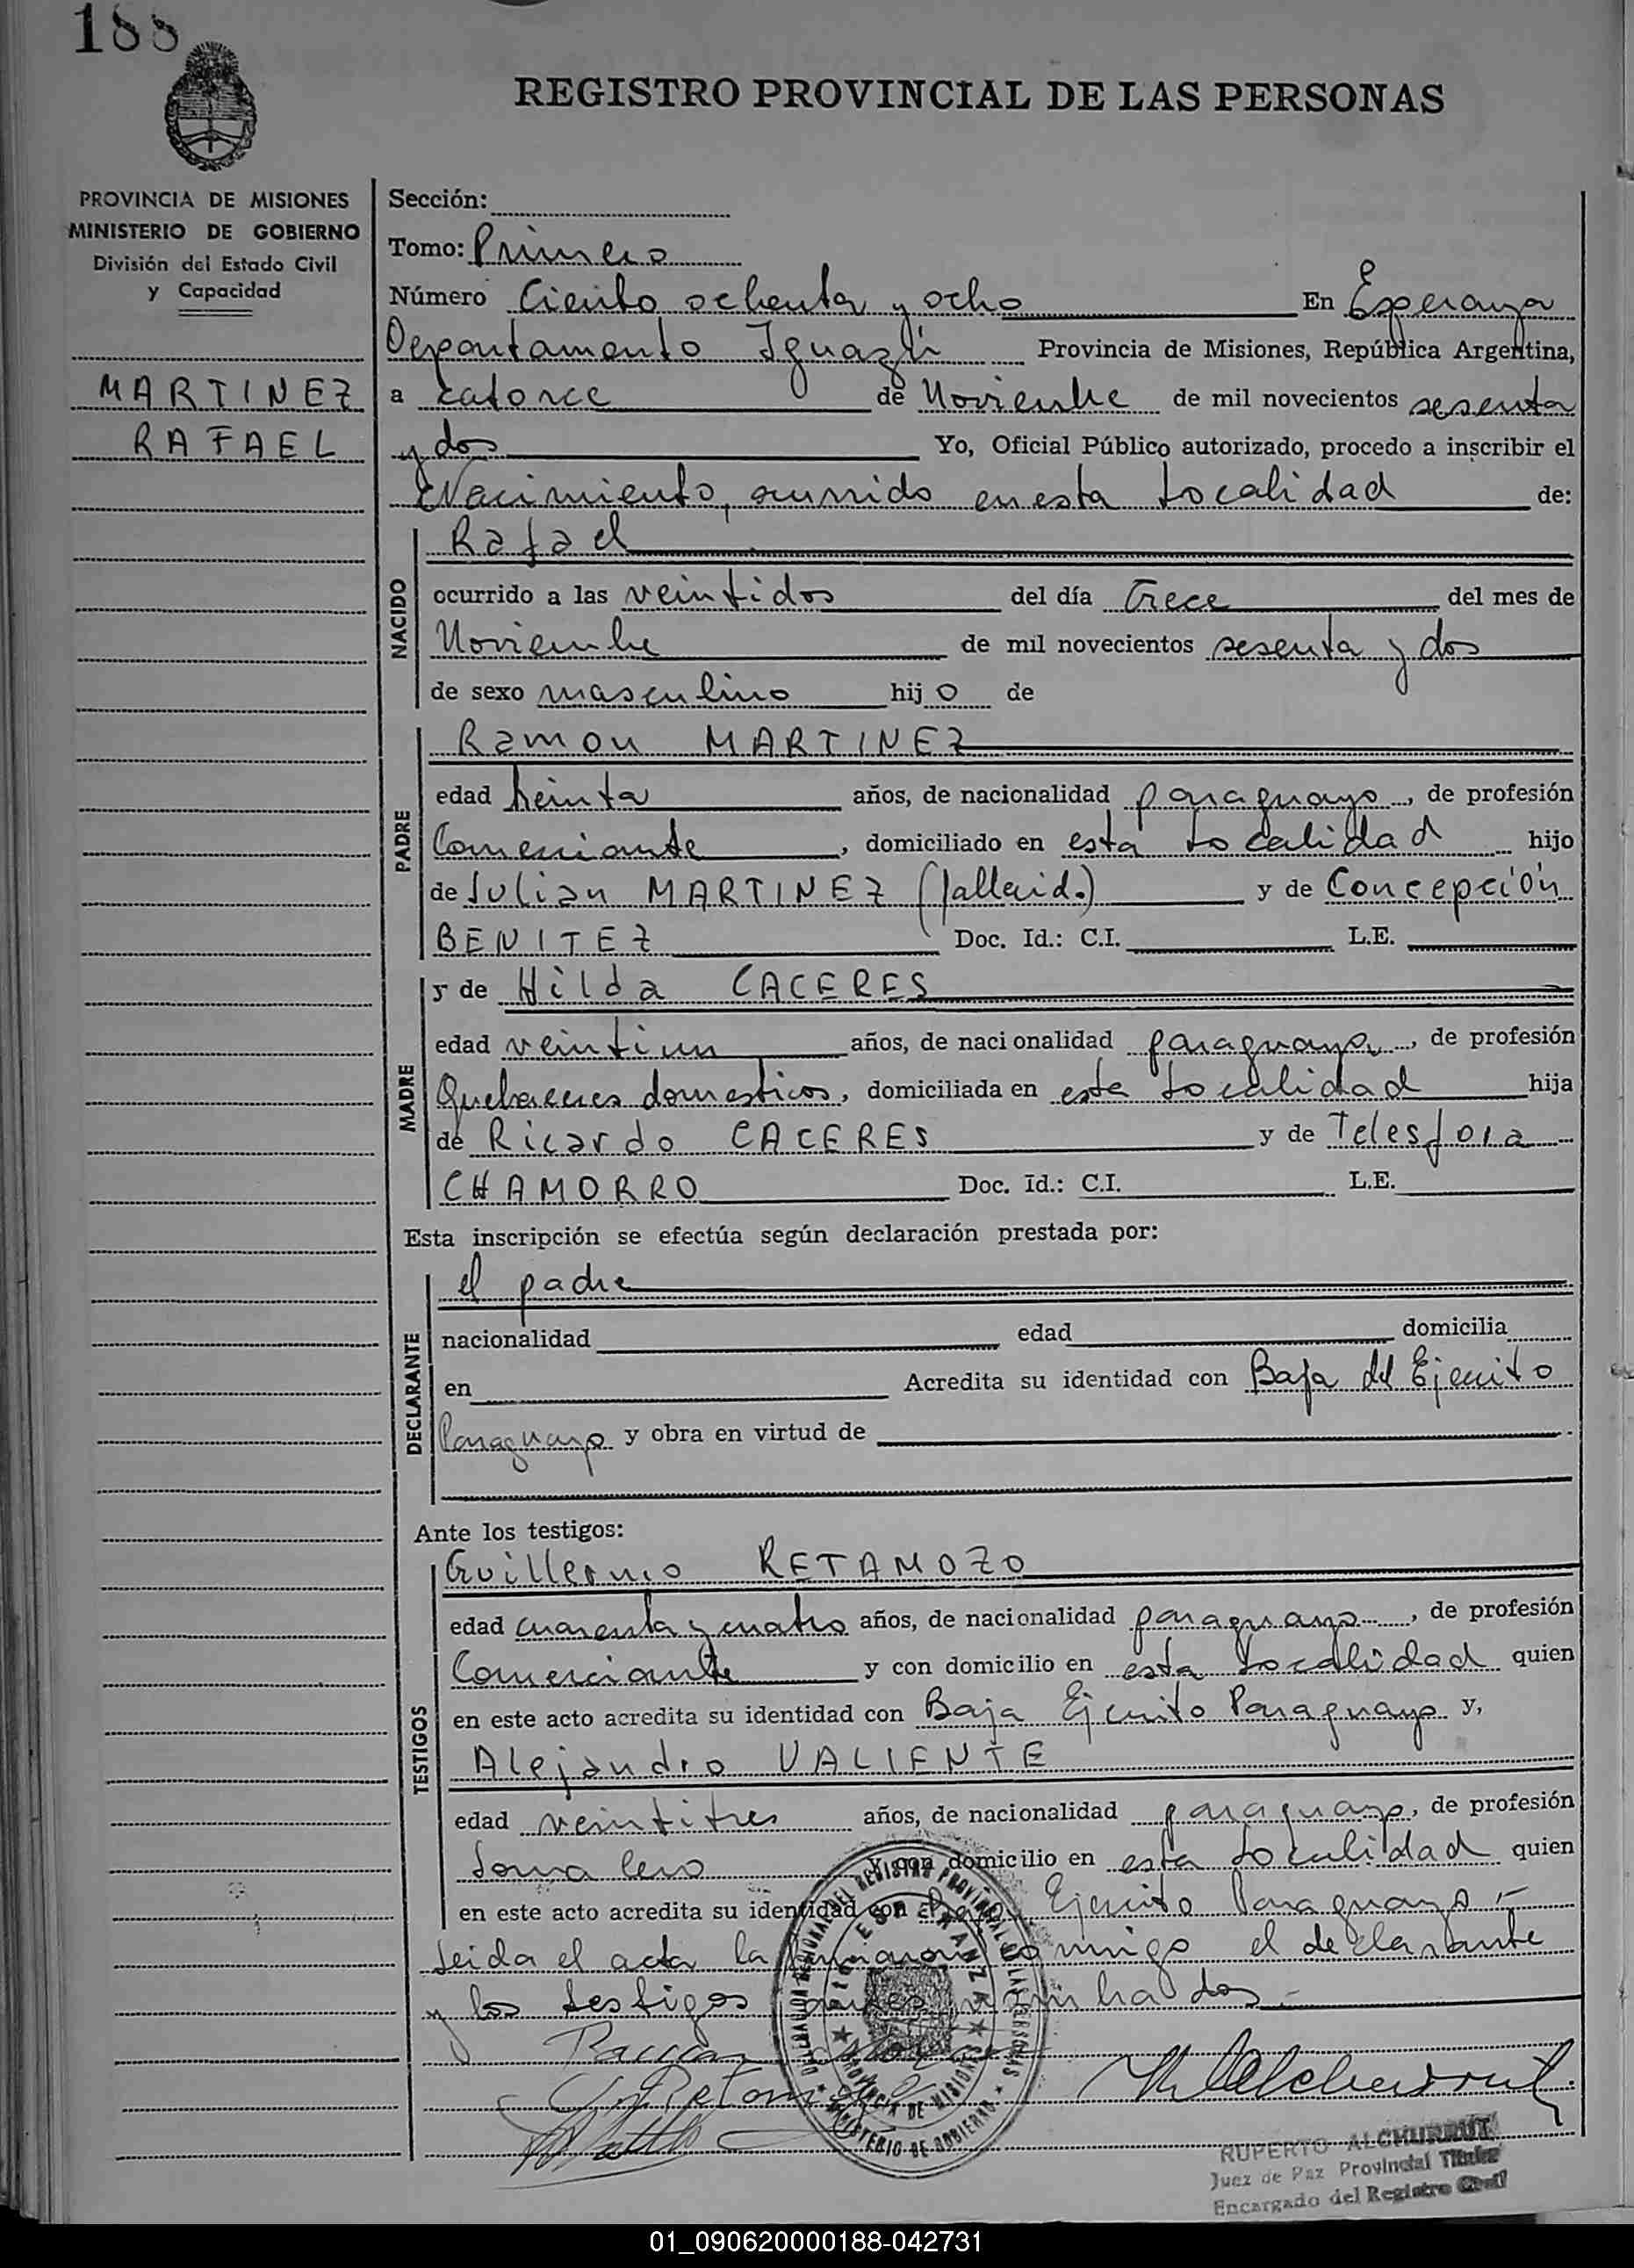 188
REGISTRO PROVINCIAL DE LAS PERSONAS
PROVINCIA DE MISIONES
MINISTERIO DE GOBIERNO
División del Estado Civil
y Capacidad
MARTINEZ
RAFAEL
Sección:
Tomo: Primero
Número Ciento ochenta y ocho En Esperanza
Departamento Iguazú Provincia de Misiones, República Argentina,
a catorce de Noviembre de mil novecientos sesenta
y dos Yo, Oficial Público autorizado, procedo a inscribir el
Nacimiento, ocurrido en esta Localidad de:
NACIDO
Rafael
ocurrido a las veintidos del día trece del mes de
Noviembre de mil novecientos sesenta y dos
de sexo masculino hijo de
PADRE
Ramon MARTINEZ
edad treinta años, de nacionalidad paraguayo, de profesión
Comerciante, domiciliado en esta Localidad hijo
de Julian MARTINEZ (fallecid.) y de Concepción
BENITEZ Doc. Id.: C.I. L.E.
MADRE
y de Hilda CACERES
edad veintiun años, de nacionalidad paraguaya, de profesión
Quehaceres domesticos, domiciliada en esta Localidad hija
de Ricardo CACERES y de Telesfora
CHAMORRO Doc. Id.: C.I. L.E.
Esta inscripción se efectúa según declaración prestada por:
DECLARANTE
el padre
nacionalidad edad domicilia
en Acredita su identidad con Baja del Ejercito
Paraguayo y obra en virtud de
Ante los testigos:
TESTIGOS
Guillermo RETAMOZO
edad cuarenta y cuatro años, de nacionalidad paraguayo, de profesión
Comerciante y con domicilio en esta Localidad quien
en este acto acredita su identidad con Baja Ejercito Paraguayo y,
Alejandro VALIENTE
edad veintitres años, de nacionalidad paraguayo, de profesión
Jornalero y con domicilio en esta Localidad quien
en este acto acredita su identidad con Baja Ejercito Paraguayo.-
Leida el acta la firmaron conmigo el declarante
y los testigos
DELEGACION REGIONAL DEL REGISTRO PROVINCIAL DE LAS PERSONAS
MINISTERIO DE GOBIERNO
ESPERANZA
PROVINCIA DE MISIONES
Ramon
G Retamozo
R Alchurrut
RUPERTO ALCHURRUT
Juez de Paz Provincial Titular
Encargado del Registro Civil
01_090620000188-042731